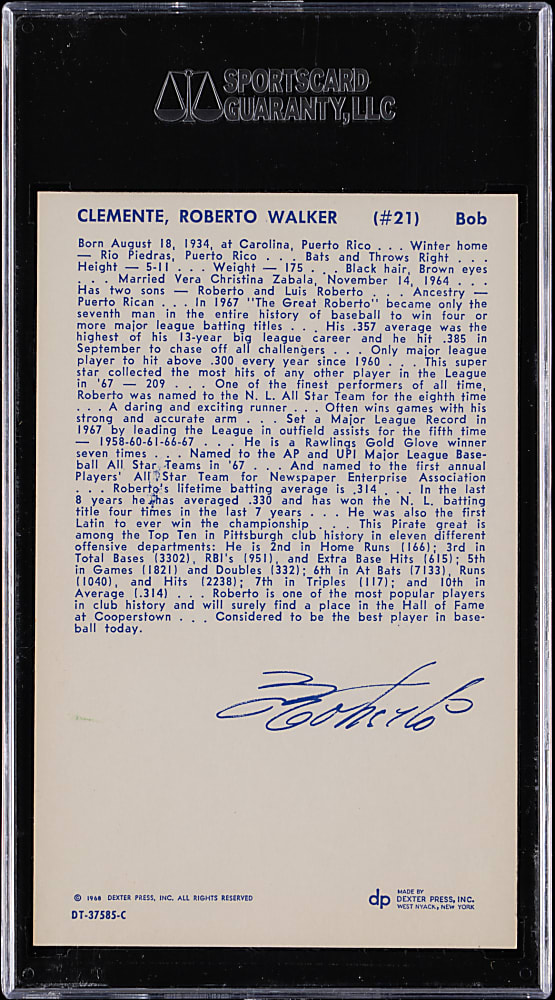 SPORTSCARD
GUARANTY, LLC
CLEMENTE, ROBERTO WALKER (#21) Bob
Born August 18, 1934, at Carolina, Puerto Rico . . . Winter home
— Rio Piedras, Puerto Rico . . . Bats and Throws Right . . .
Height — 5-11 . . . Weight — 175 . . . Black hair, Brown eyes
. . . Married Vera Christina Zabala, November 14, 1964 . . .
Has two sons — Roberto and Luis Roberto . . . Ancestry —
Puerto Rican . . . In 1967 "The Great Roberto" became only the
seventh man in the entire history of baseball to win four or
more major league batting titles . . . His .357 average was the
highest of his 13-year big league career and he hit .385 in
September to chase off all challengers . . . Only major league
player to hit above .300 every year since 1960 . . . This super
star collected the most hits of any other player in the League
in '67 — 209 . . . One of the finest performers of all time,
Roberto was named to the N. L. All Star Team for the eighth time
. . . A daring and exciting runner . . . Often wins games with his
strong and accurate arm . . . Set a Major League Record in
1967 by leading the League in outfield assists for the fifth time
— 1958-60-61-66-67 . . . He is a Rawlings Gold Glove winner
seven times . . . Named to the AP and UPI Major League Base-
ball All Star Teams in '67 . . . And named to the first annual
Players' All Star Team for Newspaper Enterprise Association
. . . Roberto's lifetime batting average is .314 . . . In the last
8 years he has averaged .330 and has won the N. L. batting
title four times in the last 7 years . . . He was also the first
Latin to ever win the championship . . . This Pirate great is
among the Top Ten in Pittsburgh club history in eleven different
offensive departments: He is 2nd in Home Runs (166); 3rd in
Total Bases (3302), RBI's (951), and Extra Base Hits (615); 5th
in Games (1821) and Doubles (332); 6th in At Bats (7133), Runs
(1040), and Hits (2238); 7th in Triples (117); and 10th in
Average (.314) . . . Roberto is one of the most popular players
in club history and will surely find a place in the Hall of Fame
at Cooperstown . . . Considered to be the best player in base-
ball today.
Roberto
© 1968 DEXTER PRESS, INC. ALL RIGHTS RESERVED
DT-37585-C
dp MADE BY
DEXTER PRESS, INC.
WEST NYACK, NEW YORK